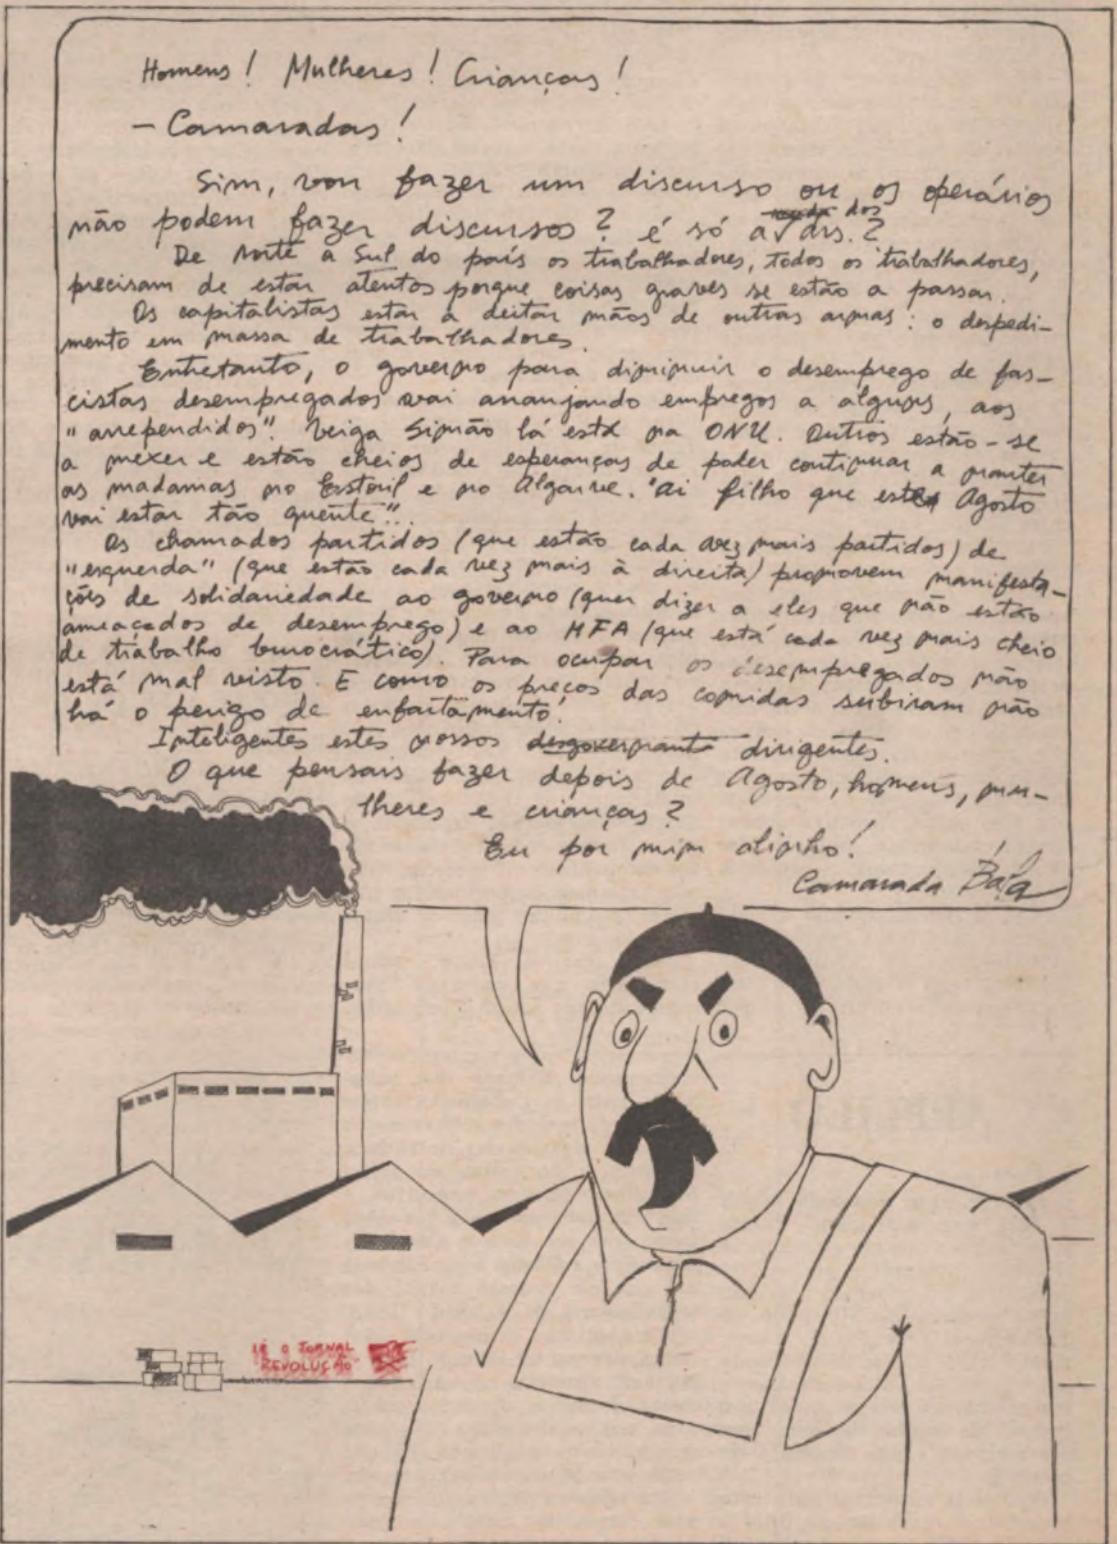 Homens! Mulheres! Crianças!
- Camaradas!
Sim, vou fazer um discurso ou os operários
não podem fazer discursos? é só a dos drs.?
De norte a Sul do país os trabalhadores, todos os trabalhadores,
precisam de estar atentos porque coisas graves se estão a passar.
Os capitalistas estar a deitar mãos de outras armas: o despedi-
mento em massa de trabalhadores.
Entretanto, o governo para diminuir o desemprego de fas-
cistas desempregados vai arranjando empregos a alguns, aos
"arrependidos". Veiga Simão lá está na ONU. Outros estão-se
a mexer e estão cheios de esperanças de poder continuar a manter
as madamas no Estoril e no Algarve. "Ai filho que este Agosto
vai estar tão quente"..
Os chamados partidos (que estão cada vez mais partidos) de
"esquerda" (que estão cada vez mais à direita) promovem manifesta-
ções de solidariedade ao governo (quer dizer a eles que não estão
ameaçados de desemprego) e ao MFA (que está cada vez mais cheio
de trabalho burocrático). Para ocupar os desempregados não
está mal visto. E como os preços das comidas subiram não
há o perigo de enfartamento!
Inteligentes estes nossos desgovernante dirigentes.
O que pensais fazer depois de Agosto, homens, mu-
lheres e crianças?
Eu por mim alinho!
Camarada Báia
LÊ O JORNAL
REVOLUÇÃO